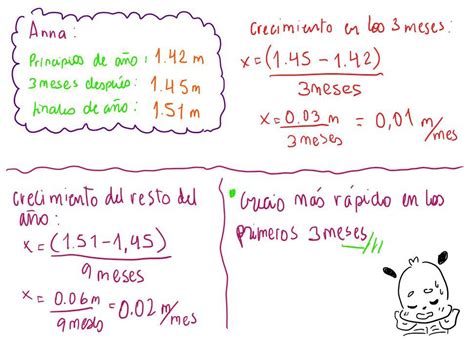 Anna:
Principios de año: 1.42 m
3 meses después: 1.45 m
finales de año: 1.51 m
Crecimiento en los 3 meses:
x = (1.45 - 1.42)
3 meses
x = 0.03 m = 0,01 m/mes
3 meses
Crecimiento del resto del
año:
x = (1.51 - 1,45)
9 meses
x = 0.06 m = 0.02 m/mes
9 meses
• Crecio más rápido en los
primeros 3 meses